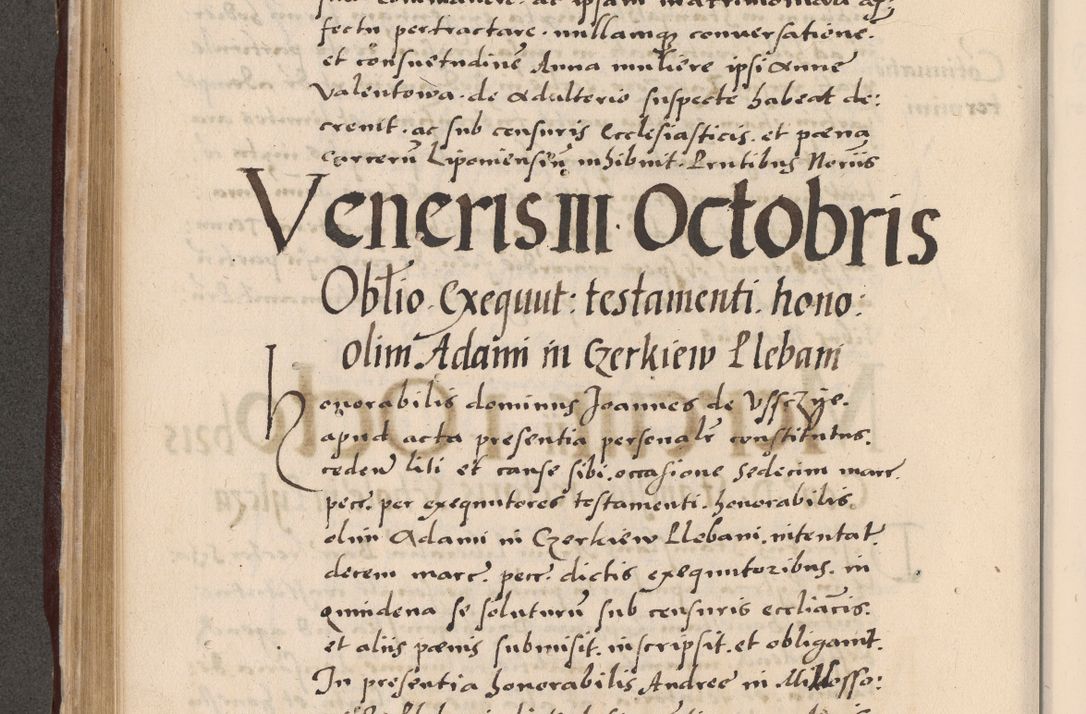 fectu pertractare. nullamqꝫ conuersatione.
et consuetudinē Anna muliere ipsi Anne
Valentowa. de Adulterio suspecte habeat de:
creuit. ac sub censuris Ecclesiasticis. et pœna
carcerū Liponiensiū inhibuit. Pntibus Noriis
Veneris III. Octobris
Obłio. Exequut: testamenti. hono:
olim Adami in Czerkiew Plebani
honorabilis dominus Joannes de Vssczye.
apud acta presentia personalr̄ constitutus.
ceden̄ liti et cause sibi. occasione sedecim marc.
pecc. per exequutores testamenti. honorabilis.
olim Adami in Czerkiew Plebani. intentat.
decem marc. pecc. dictis exequutoribus. in
quindena se soluturū sub censuris eccliācis.
et aliis pœnis submisit. inscripsit. et obligauit.
In presentia honorabilis Andree in Millosso: